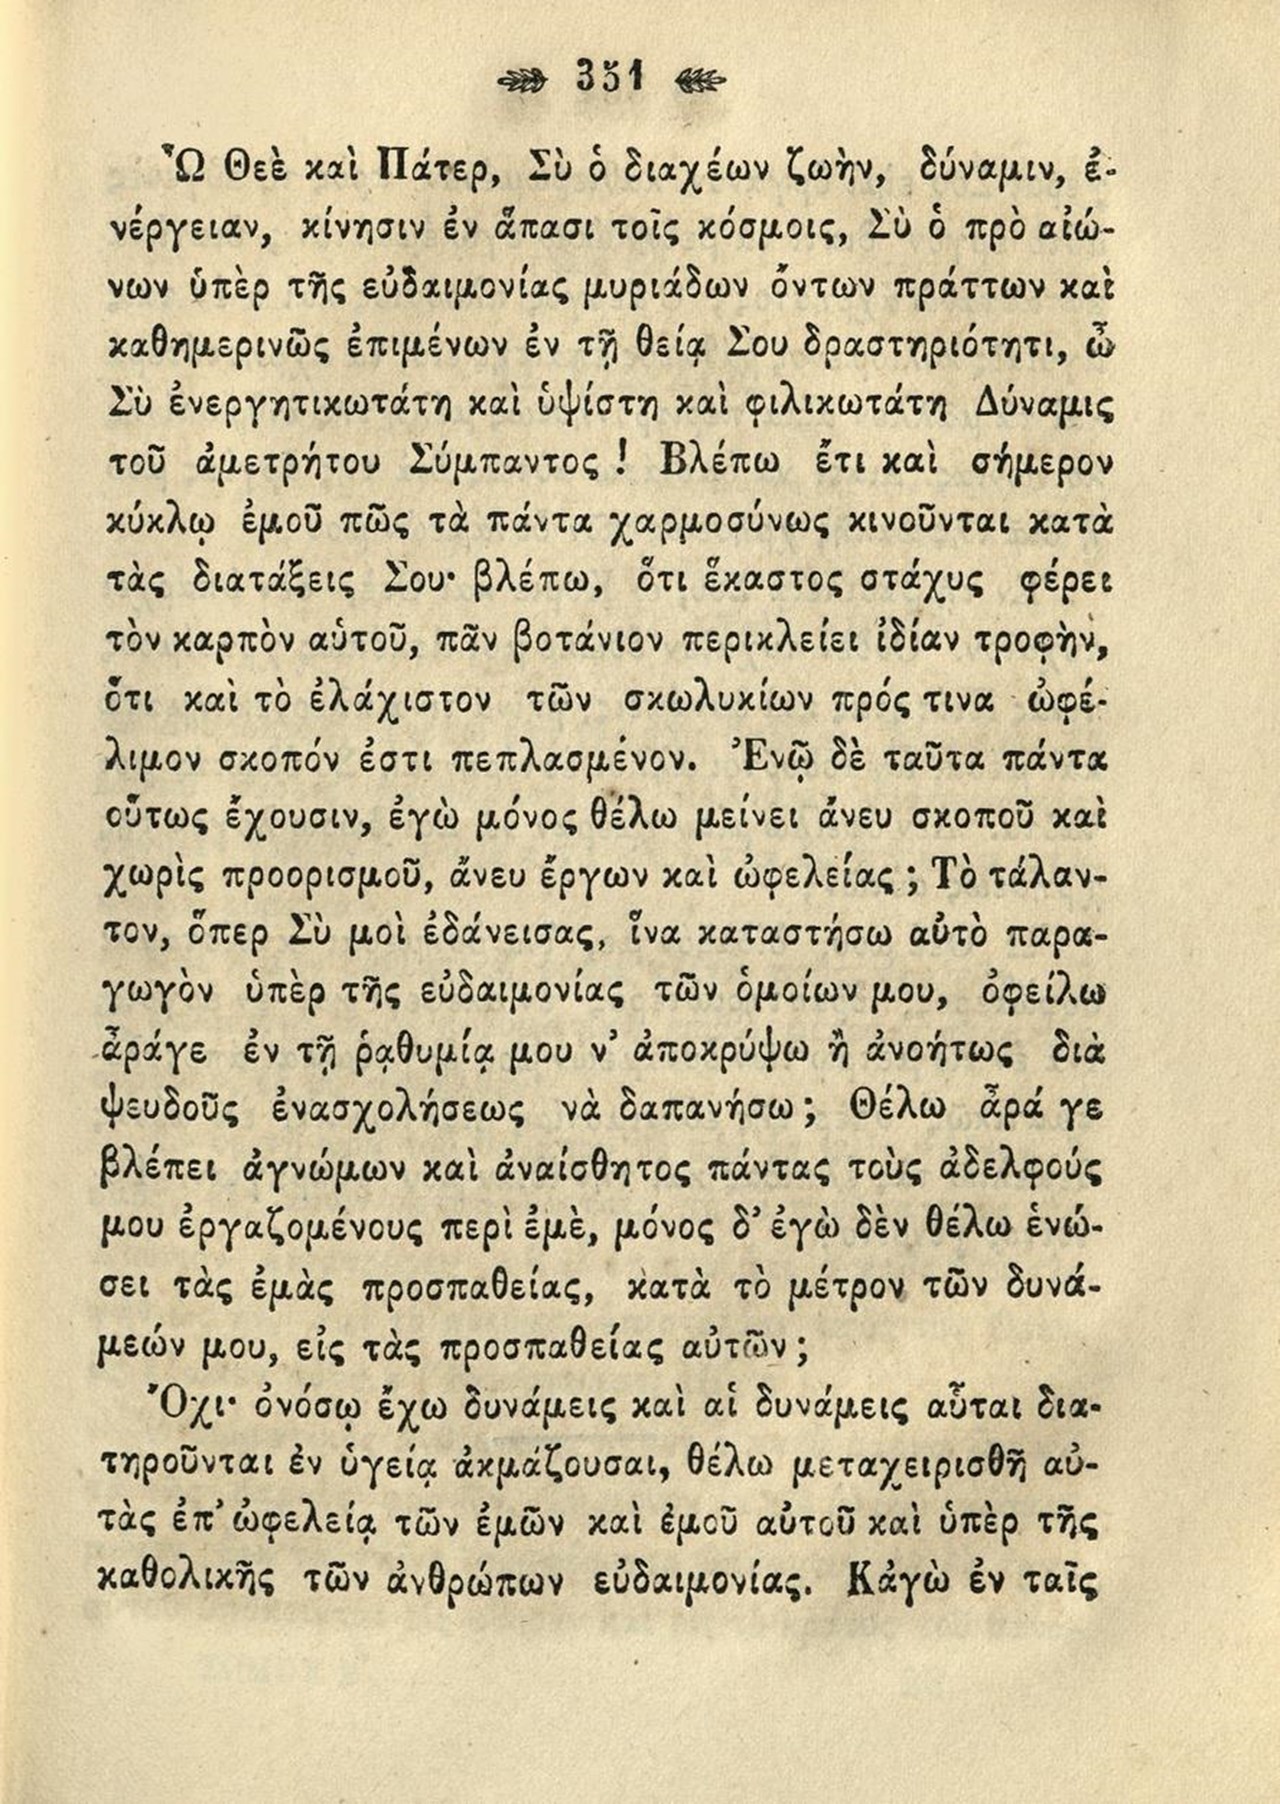 351
Ὦ Θεὲ καὶ Πάτερ, Σὺ ὁ διαχέων ζωὴν, δύναμιν, ἐ-
νέργειαν, κίνησιν ἐν ἅπασι τοῖς κόσμοις, Σὺ ὁ πρὸ αἰώ-
νων ὑπὲρ τῆς εὐδαιμονίας μυριάδων ὄντων πράττων καὶ
καθημερινῶς ἐπιμένων ἐν τῇ θείᾳ Σου δραστηριότητι, ὦ
Σὺ ἐνεργητικωτάτη καὶ ὑψίστη καὶ φιλικωτάτη Δύναμις
τοῦ ἀμετρήτου Σύμπαντος ! Βλέπω ἔτι καὶ σήμερον
κύκλῳ ἐμοῦ πῶς τὰ πάντα χαρμοσύνως κινοῦνται κατὰ
τὰς διατάξεις Σου· βλέπω, ὅτι ἕκαστος στάχυς φέρει
τὸν καρπὸν αὑτοῦ, πᾶν βοτάνιον περικλείει ἰδίαν τροφὴν,
ὅτι καὶ τὸ ἐλάχιστον τῶν σκωλυκίων πρός τινα ὠφέ-
λιμον σκοπόν ἐστι πεπλασμένον. Ἐνῷ δὲ ταῦτα πάντα
οὕτως ἔχουσιν, ἐγὼ μόνος θέλω μείνει ἄνευ σκοποῦ καὶ
χωρὶς προορισμοῦ, ἄνευ ἔργων καὶ ὠφελείας ; Τὸ τάλαν-
τον, ὅπερ Σὺ μοὶ ἐδάνεισας, ἵνα καταστήσω αὐτὸ παρα-
γωγὸν ὑπὲρ τῆς εὐδαιμονίας τῶν ὁμοίων μου, ὀφείλω
ἆράγε ἐν τῇ ῥᾳθυμίᾳ μου ν' ἀποκρύψω ἢ ἀνοήτως διὰ
ψευδοῦς ἐνασχολήσεως νὰ δαπανήσω ; Θέλω ἆρά γε
βλέπει ἀγνώμων καὶ ἀναίσθητος πάντας τοὺς ἀδελφούς
μου ἐργαζομένους περὶ ἐμὲ, μόνος δ' ἐγὼ δὲν θέλω ἑνώ-
σει τὰς ἐμὰς προσπαθείας, κατὰ τὸ μέτρον τῶν δυνά-
μεών μου, εἰς τὰς προσπαθείας αὐτῶν ;
Ὄχι· ὁνόσῳ ἔχω δυνάμεις καὶ αἱ δυνάμεις αὗται δια-
τηροῦνται ἐν ὑγείᾳ ἀκμάζουσαι, θέλω μεταχειρισθῆ αὐ-
τὰς ἐπ' ὠφελείᾳ τῶν ἐμῶν καὶ ἐμοῦ αὐτοῦ καὶ ὑπὲρ τῆς
καθολικῆς τῶν ἀνθρώπων εὐδαιμονίας. Κἀγὼ ἐν ταῖς